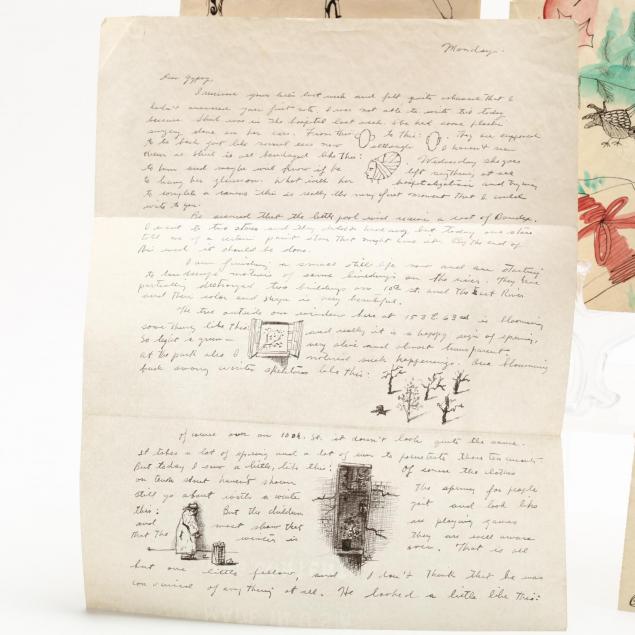 Monday.
Dear Gypsy,
I received your letter last week and felt quite ashamed that I
hadn't answered your first note. I was not able to write til today
because Sheil was in the hospital last week. She had some plastic
surgery done on her ears. From this to this: They are supposed
to be back just like normal ears now although I haven't seen
them as Sheil is all bandaged like this: Wednesday she goes
to him and maybe will know if he left anything at all
to hang her glasses on. What with her hospitalization and trying
to complete a canvas this is really the very first moment that I could
write to you.
Be assured that the little pool will receive a coat of
I went to two stores and they didn't have any but today one store
told me of a certain paint store that might have it. By the end of
the week it should be done.
I am finishing a small still life now and am starting
to landscape motives of some buildings on the river. They are
partially destroyed two buildings on 10th St. and the East River
and their color and shape is very beautiful.
The tree outside our window here at 153 E 63rd is blooming
something like this and really it is a happy sign of spring,
So light a green — very alive and almost transparent
At the park also I noticed such happenings. One blooming
back among winter skeletons like this:
Of course over on 10th St. it doesn't look quite the same.
It takes a lot of spring and a lot of sun to penetrate those tenements.
But today I saw a little, like this: Of course the clothes
on tenth street haven't shown The spring for people
still go about with a winter yet and look like
this: But the children are playing games
and most show that they are well aware
that the winter is over. That is all
but one little fellow, and I don't think that he was
convinced of anything at all. He looked a little like this: